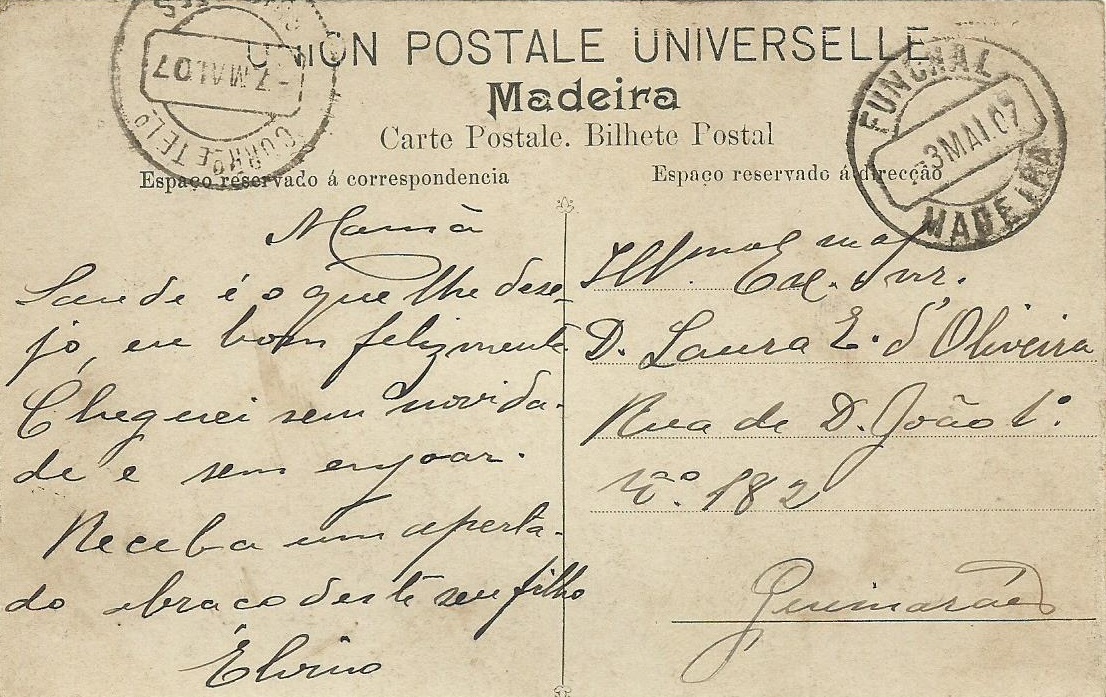 UNION POSTALE UNIVERSELLE
Madeira
Carte Postale. Bilhete Postal
Espaço reservado á correspondencia
Espaço reservado á direcção
-7.MAI.07
CORR E TELº
FUNCHAL
3 MAI 07
MADEIRA
Mamã
Saude é o que lhe dese-
jo, eu bom felizmente
Cheguei sem novida-
de e sem enjoar.
Receba um aperta-
do abraço deste seu filho
Elvino
Illma Exma Snr.
D. Laura E. d'Oliveira
Rua de D. João 1.º
Nº. 182
Guimarães